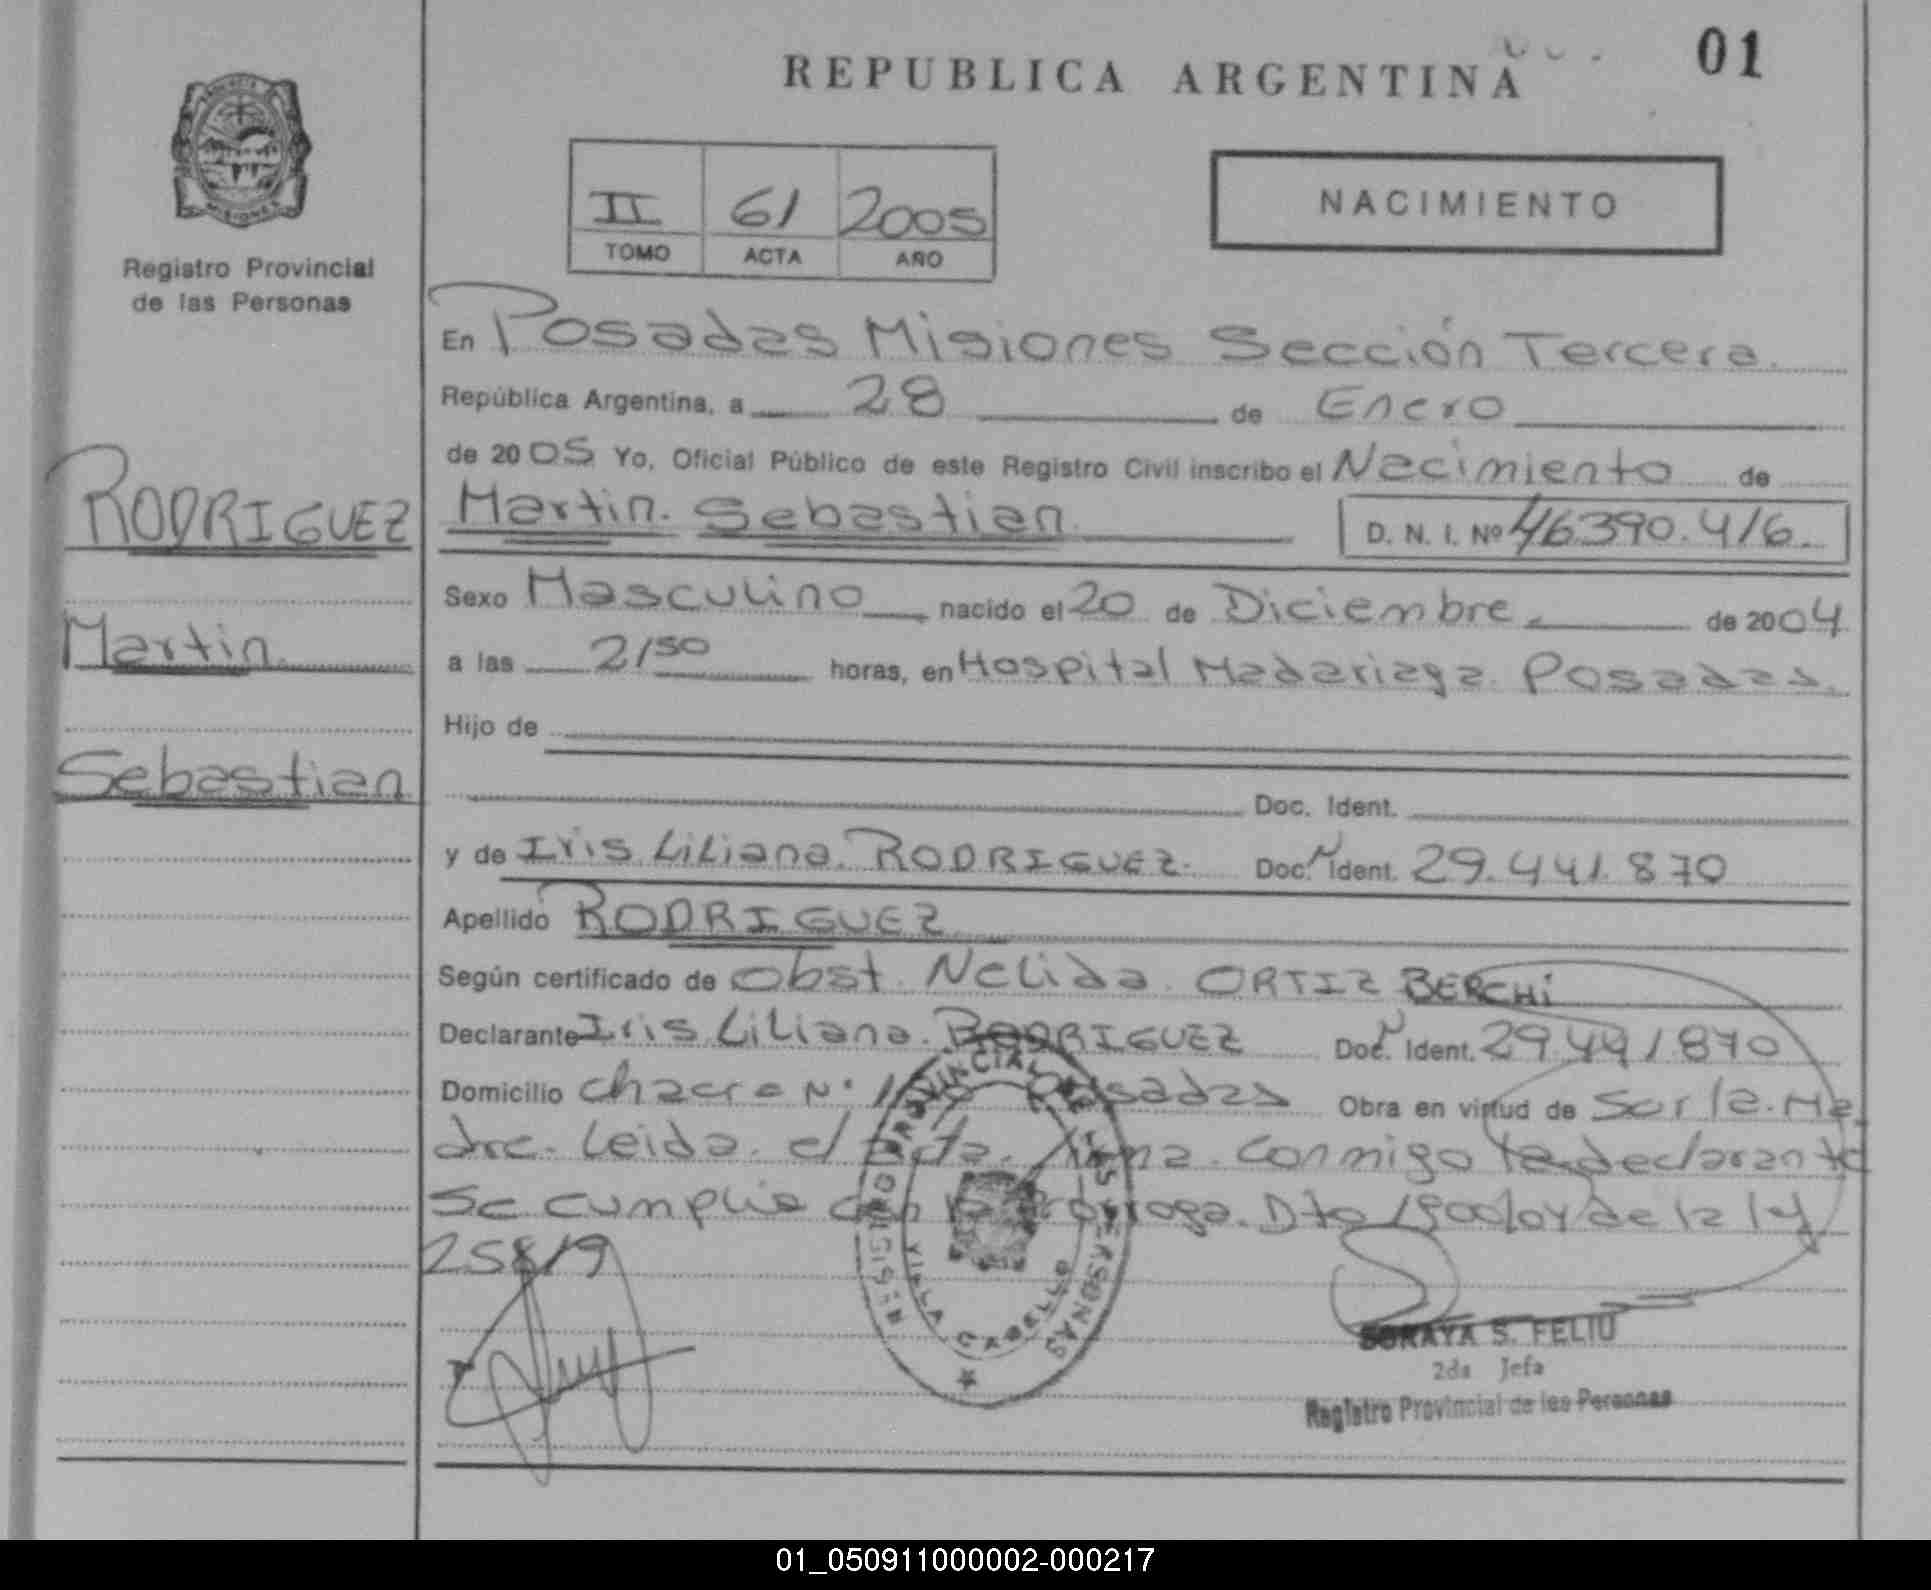 REPUBLICA ARGENTINA
01
II 61 2005
TOMO ACTA AÑO
NACIMIENTO
MISIONES
Registro Provincial
de las Personas
En Posadas Misiones Sección Tercera.
República Argentina, a 28 de Enero
de 2005 Yo, Oficial Público de este Registro Civil inscribo el Nacimiento de
RODRIGUEZ
Martin. Sebastian. D. N. I. Nº 46390.416.
Sexo Masculino nacido el 20 de Diciembre de 2004
Martin
a las 2150 horas, en Hospital Madariaga Posadas.
Hijo de
Sebastian
Doc. Ident.
y de Iris Liliana RODRIGUEZ. Doc. Ident. 29.441.870
Apellido RODRIGUEZ
Según certificado de Obst. Nelida ORTIZ BERCHi
Declarante Iris Liliana RODRIGUEZ Doc. Ident. 29441870
Domicilio Chacra Nº Posadas Obra en virtud de Ser la Ma
dre. Leida el acta firma conmigo la declarante
Se cumplio con la Prorroga. Dto 1900/04 de la ley
25819
PROVINCIAL DE LAS PERSONAS
MISIONES
VILLA CABELLO
SORAYA S. FELIU
2da Jefa
Registro Provincial de las Personas
01_050911000002-000217